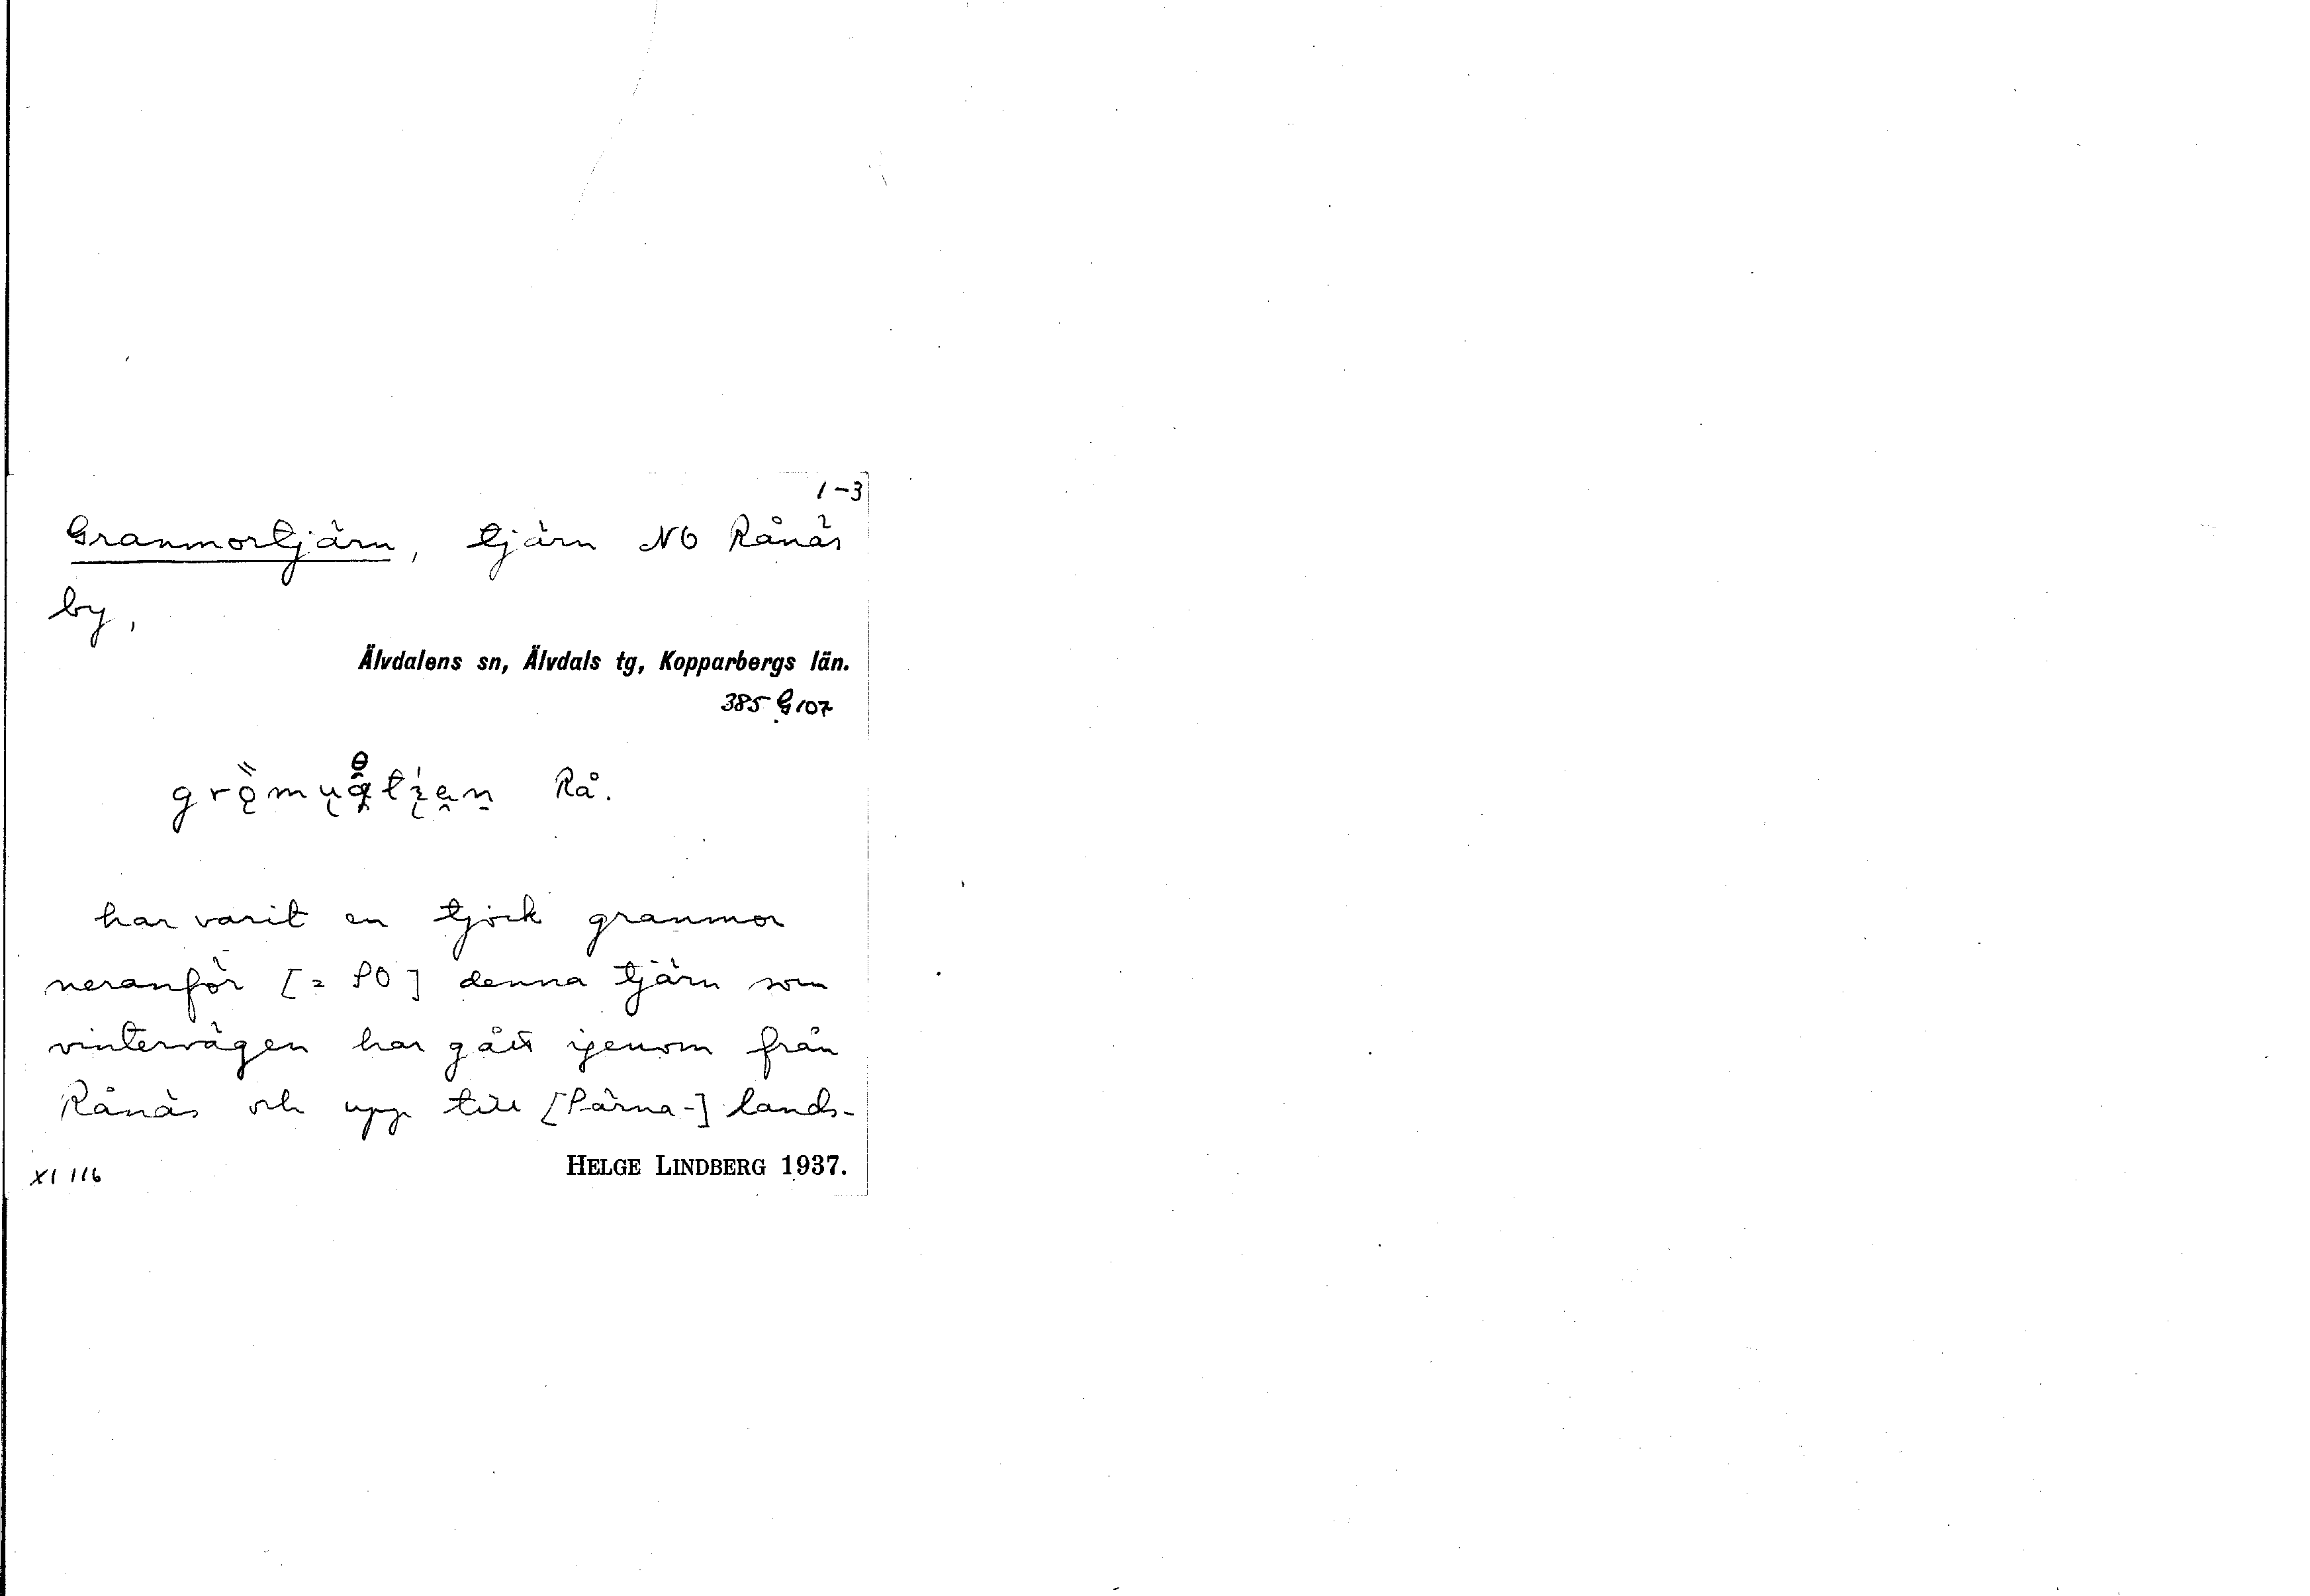 1-3
Granmortjärn, tjärn NO Rånäs
by,
Älvdalens sn, Älvdals tg, Kopparbergs län.
385 G 107
Rå.
har varit en tjock granmor
neranför [= SO] denna tjärn som
vintervägen har gått igenom från
Rånäs och upp till [Särna-] lands-
XI 116
HELGE LINDBERG 1937.